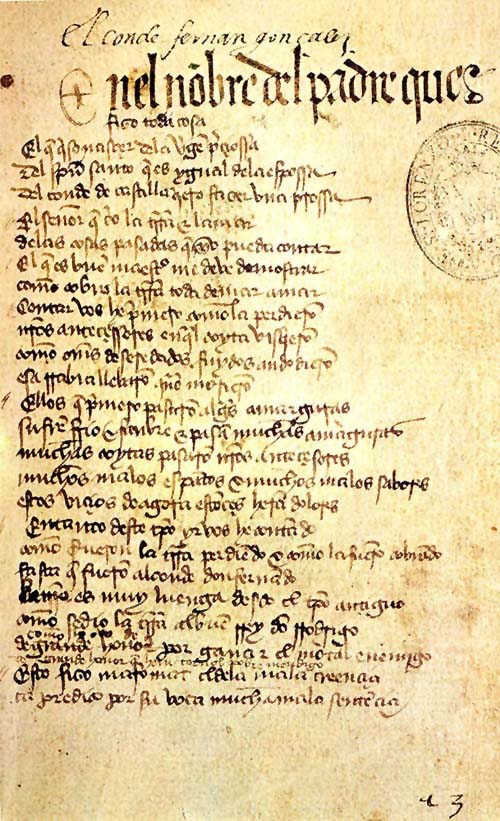 El conde fernan gonçalez
nel nōbre del padre que es
fizo toda cosa
El que quiso nasçer dela virgē preçiosa
del spū santo que es ygual dela esposa
del conde de castilla quiero facer vna prossa
El señor que crio la tierra & la mar
delas cosas pasadas que yo pueda contar
El que es buē maestro me deve demostrar
como cobro la tierra toda de mar a mar
Contar vos he primero como la perdierō
nrōs anteçessores en qual coyta visquierō
como oms deseredados fuydos andodierō
essa
Ellos que primero pasarō amarguras
sufrir frio & fanbre & pasar muchas amarguras
muchas coytas pasarō nrōs anteçesores
muchos malos espātos & muchos malos sabores
estos viçios de agora estonçes herā dolores
Entanto deste tpō yr vos he contādo
como fueron la tierra perdiēdo & como la fuerō cobrādo
fasta que fuerō al conde don fernādo
como es muy luenga desde el tpō antiguo
como se dio la tierra al buē Rey dō Rodrigo
como
de grande honor por ganar el mortal enemigo
Esto fizo mafomat el dela mala creençia
ca predico por su voca mucha mala sentēçia